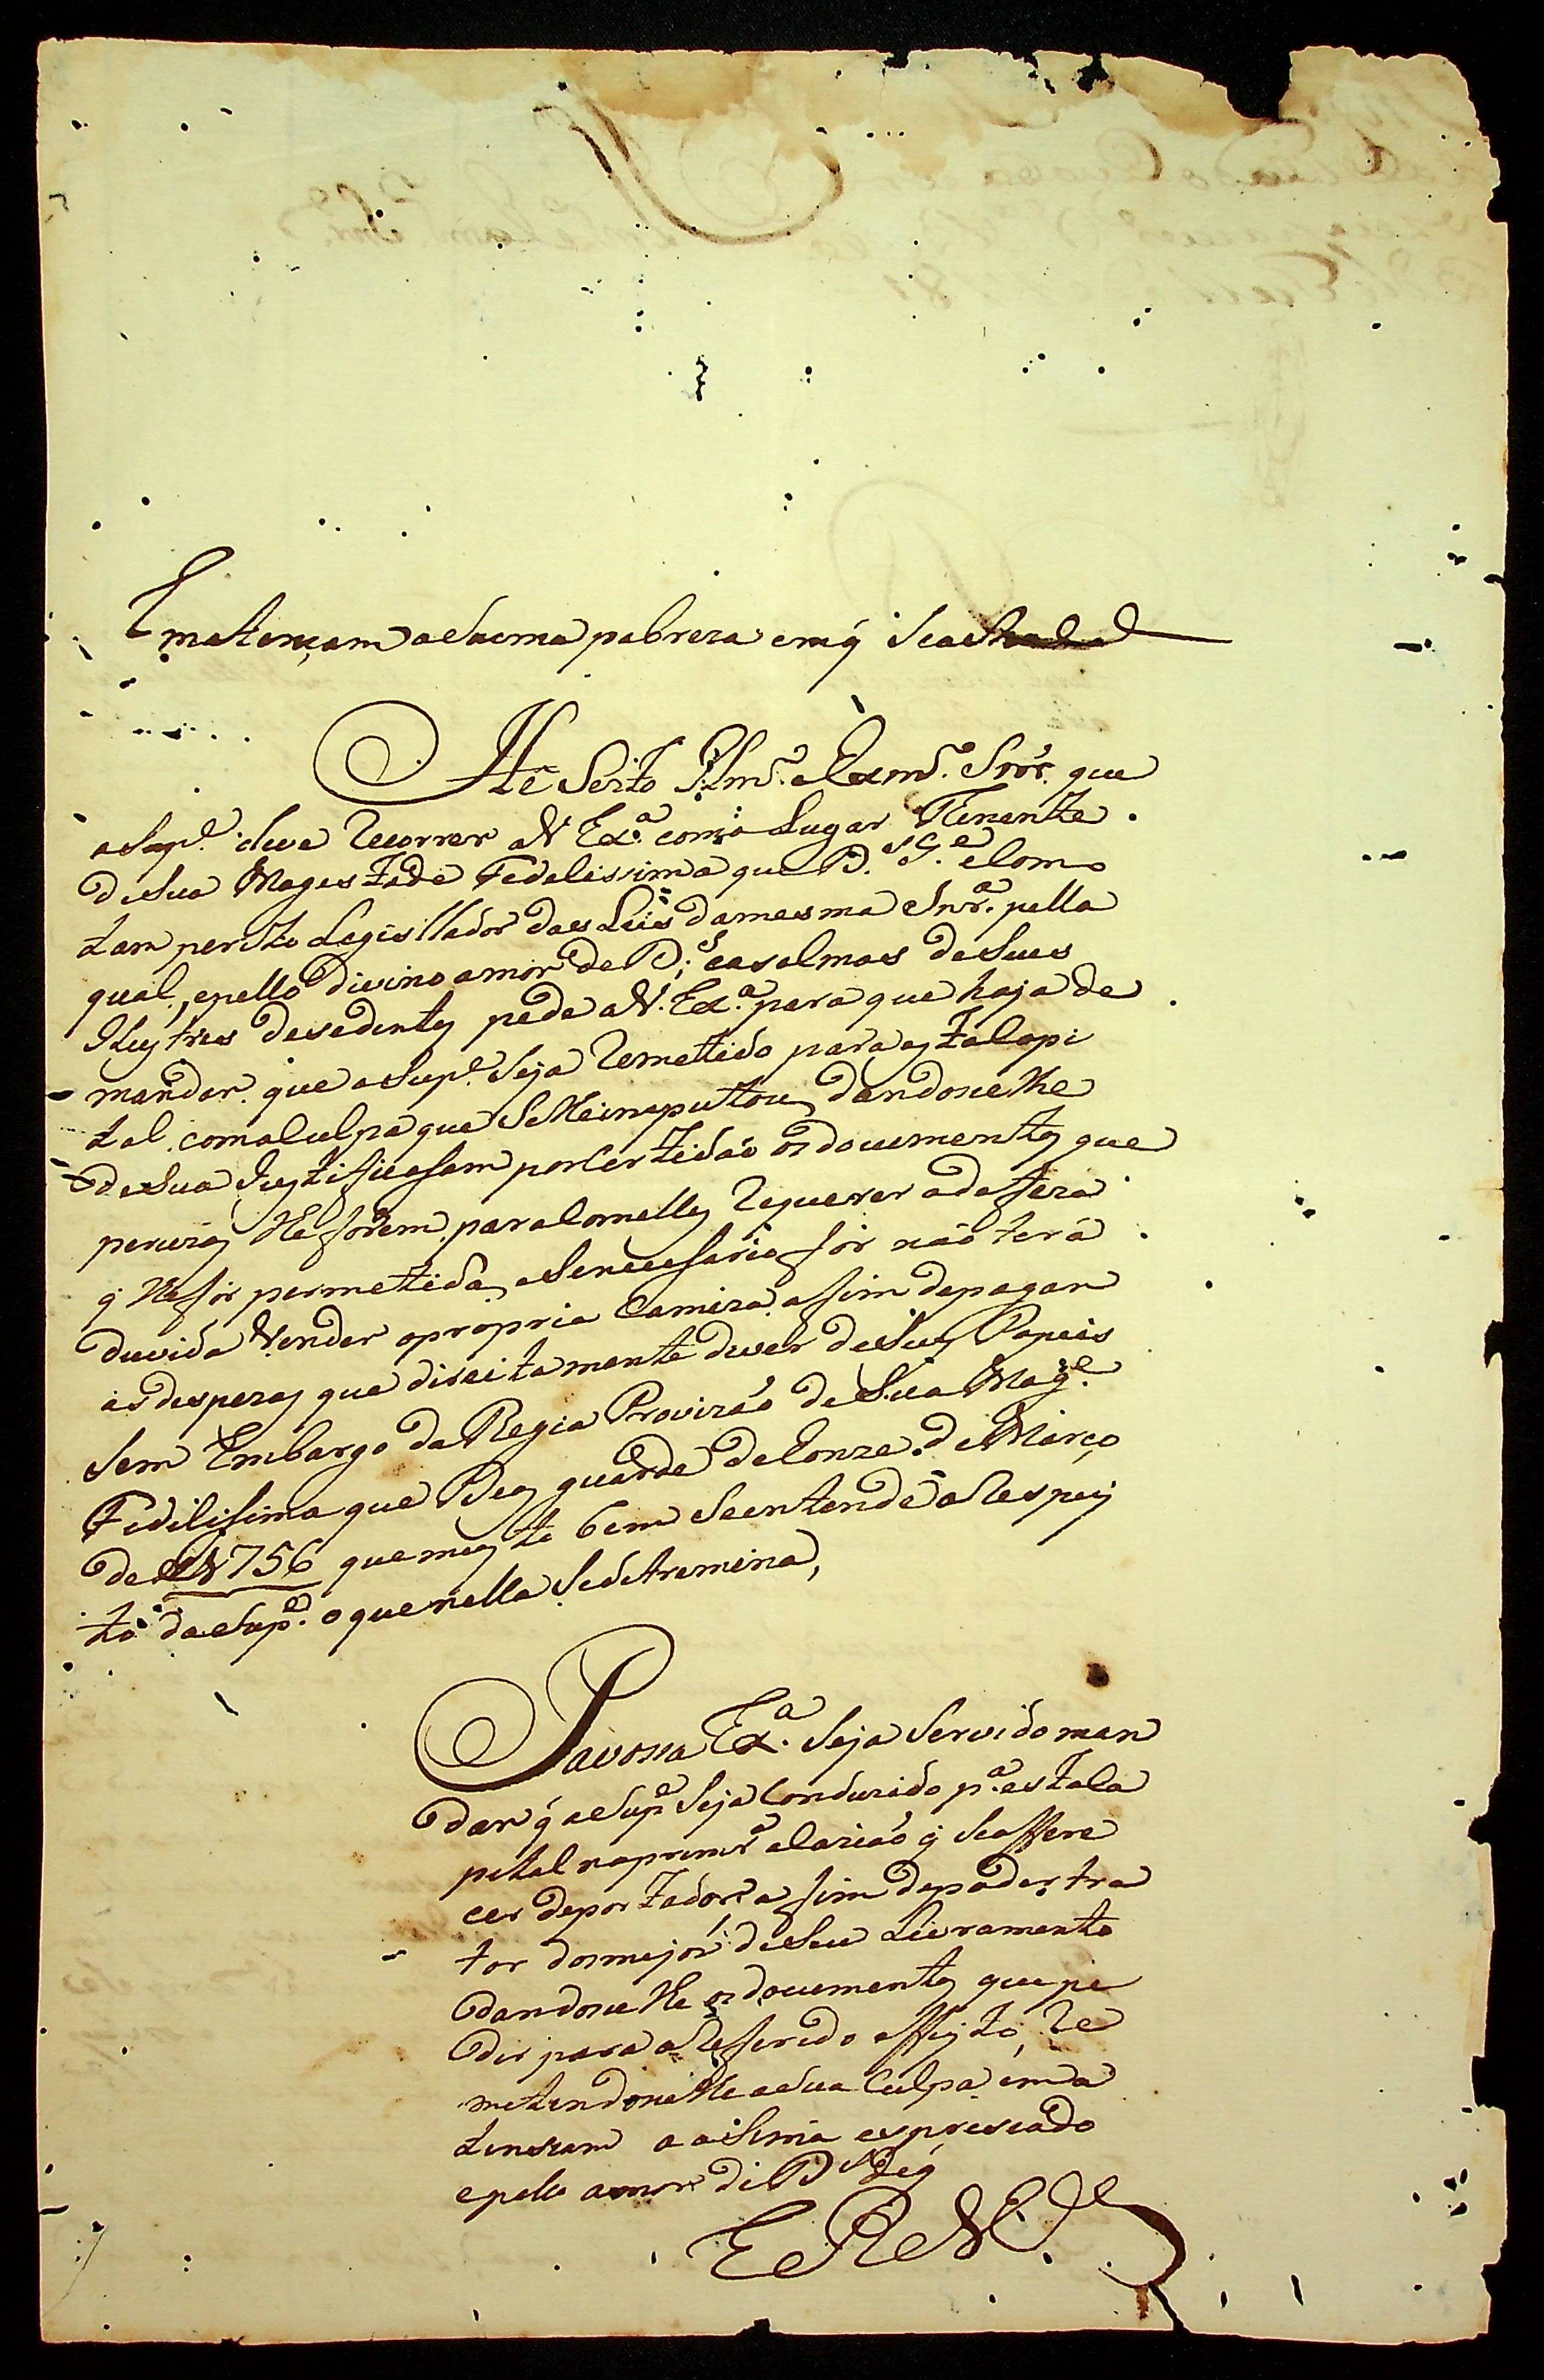 Ematençam asuema pobreza emq̃ Seacha
He Serto Illmº. e Exmº. Snõr. que
o Supᵉ. deve Recorrer aV Exª. como Lugar Thenente
deSua Magestade Fedelissima que D.ˢ Gᵉ. eComo
tam perito Legisllador das Leis damesma Snrª. pella
qual, epello Divino amor de D.ˢ eas almas deSeus
Illustres desedentes pede aV. Exª. para que haja de
mandar. que oSupᵉ. Seja Remetido para esta Capi
tal comaCulpa que SeLheinputou, dandoseLhe
deSua Justificasam porCertidão os documentos que
percizos Lheforem, paraComelles Requerer adefeza
q̃ Lhefor permetida, eSeneceSario for não terá
duvida Vender apropria Camiza afim depagar
as despezas que direitamente dever deSeus Papeis
Sem Embargo da Regia Provizão de Sua Magᵉ.
FediliSima que Deos guarde de Conze de Março
de 1756 quemuito bem Seentende aRespei
to do Supᵉ. o que nella Sedetremina,
PaVossa Exª. Seja Servido man
dar q̃ oSupᵉ Seja Conduzido pª. esta Ca
pital naprimrª ocazião q̃ Seoffere
cer deportador, afim depoder tra
tar domejor deSeu Livramento
dandoseLhe os documentos quepe
dir para oReferido effeyto, Re
metendoseLhe aSua Culpa em a
tensam aaSima espresado
epello amor de Dˢ
E R Mᶜᵉ